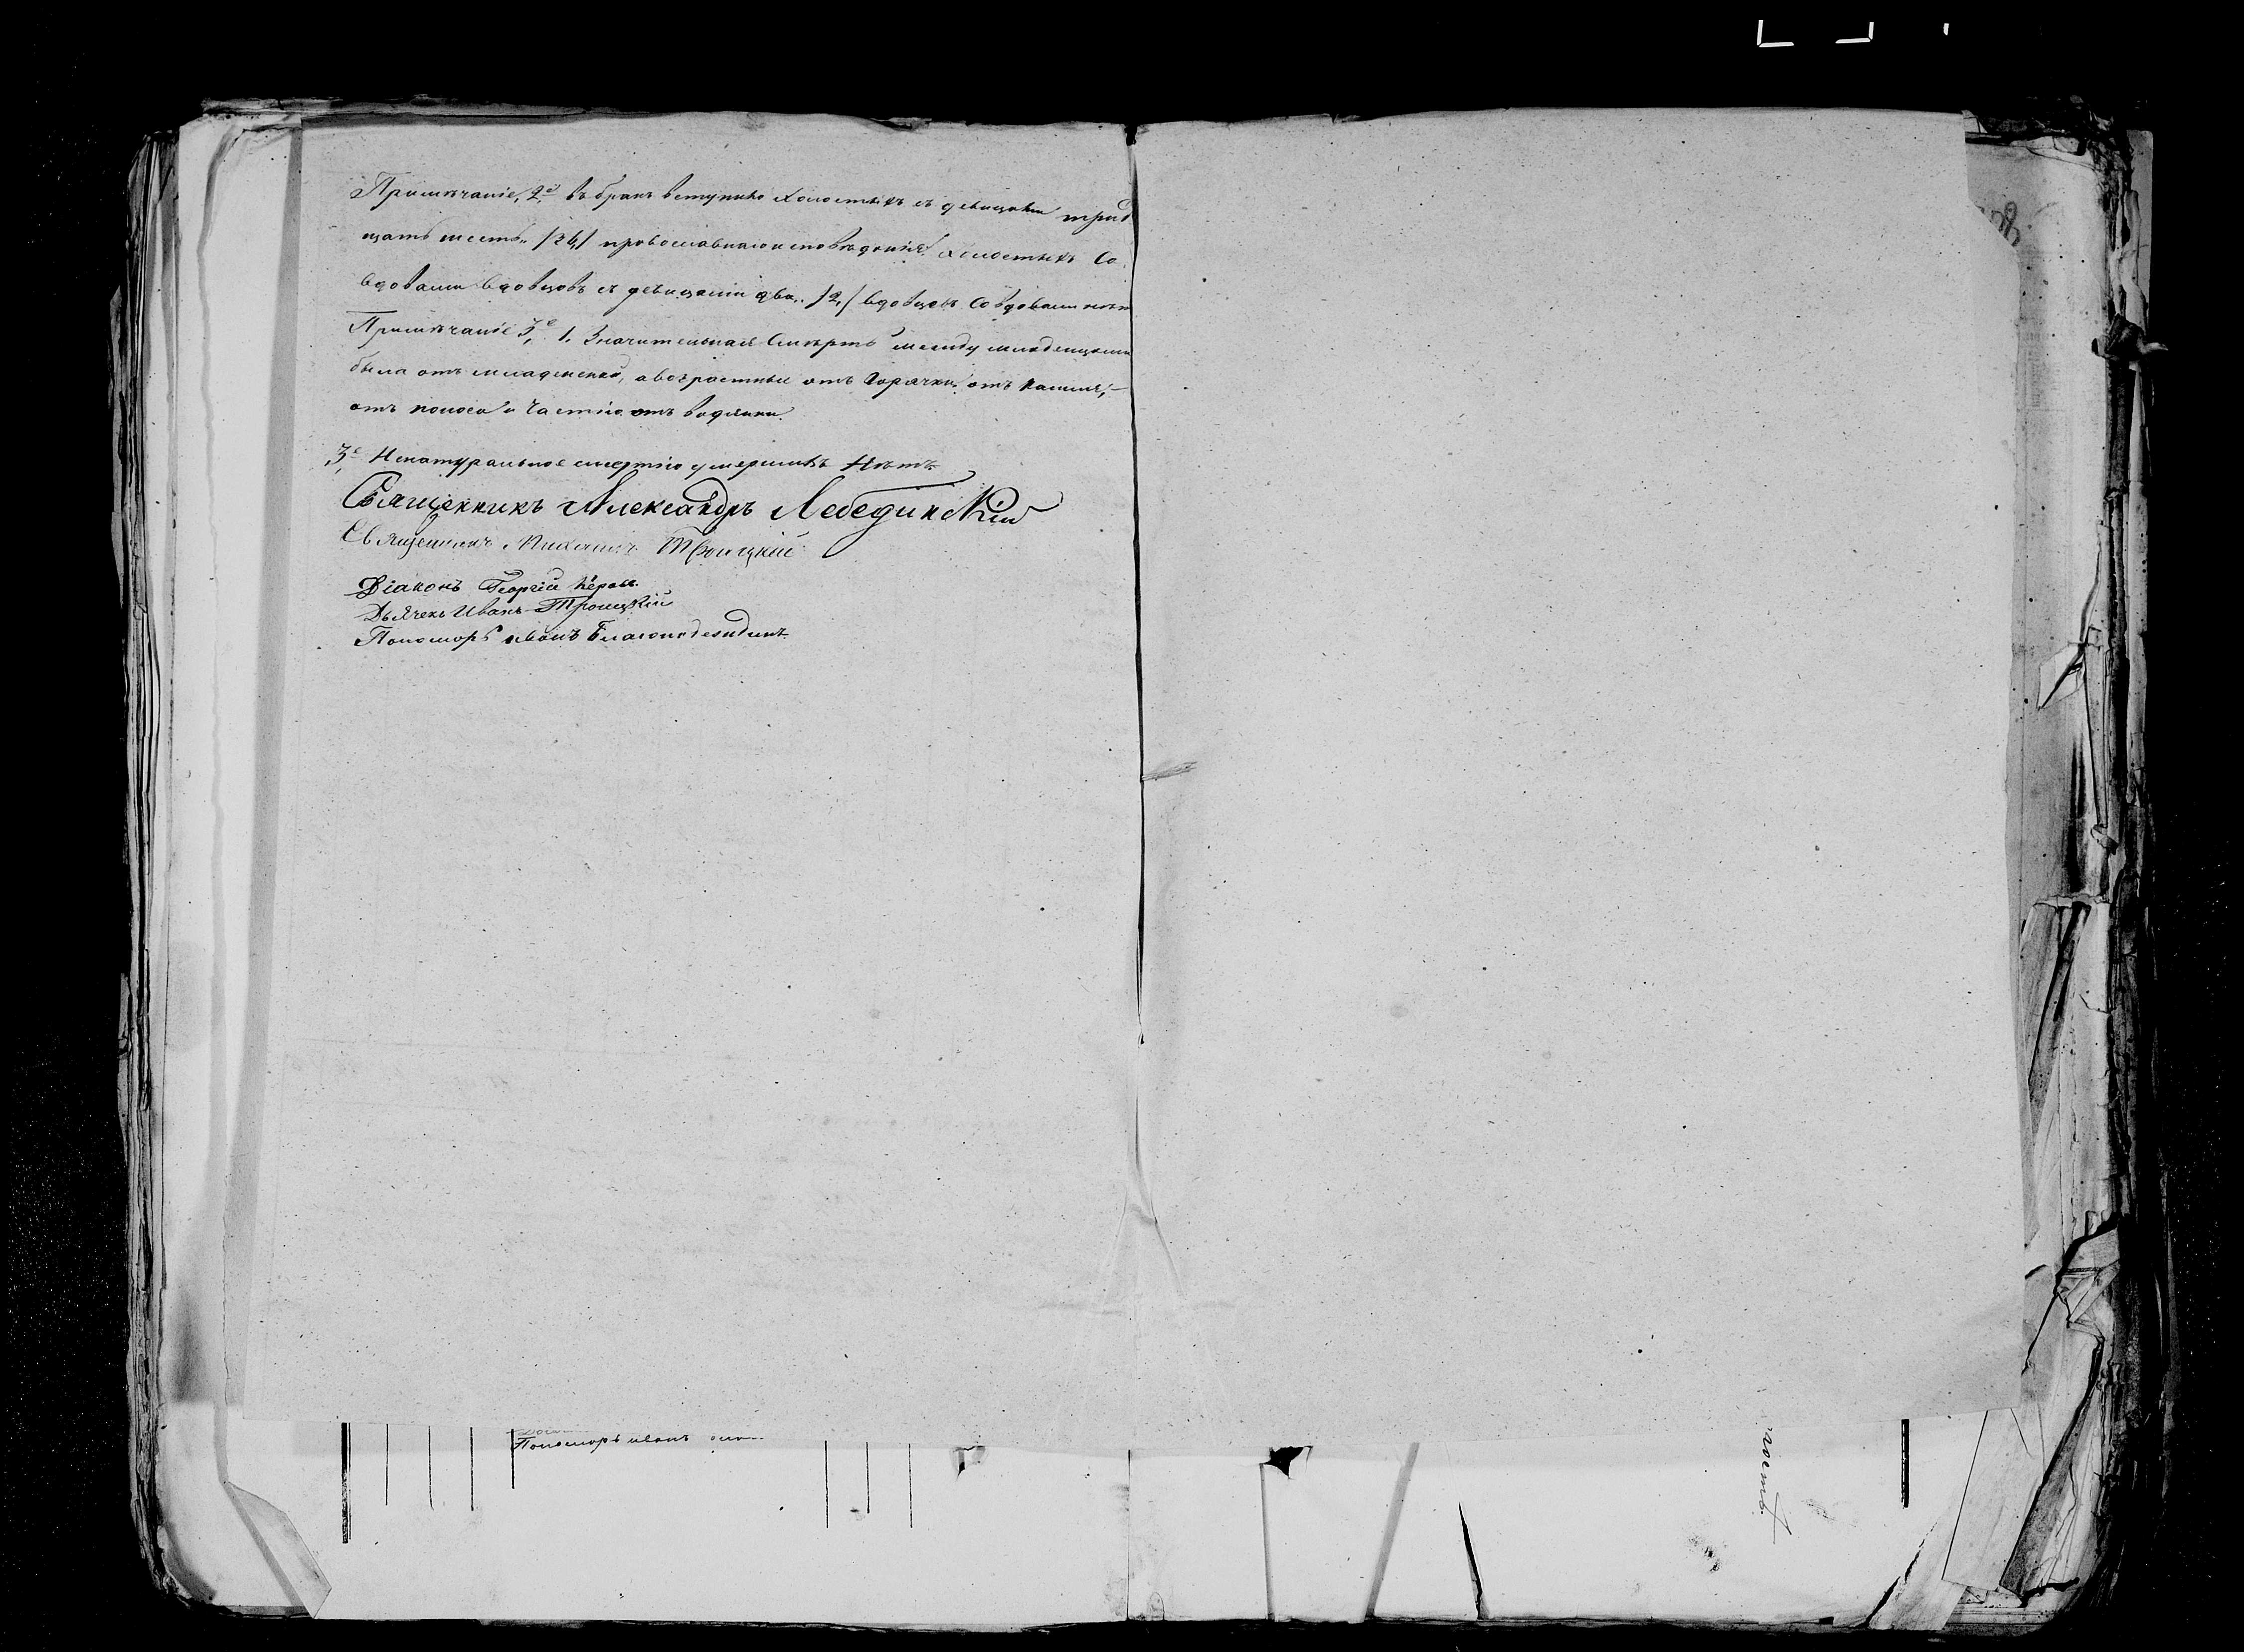 Примѣчаніе, 2е въ бракъ вступило холостыхъ съ дѣвицами трид
цать шесть„ /36,/ православнаго исповѣданія, холостыхъ со
вдовами вдовцовъ съ дѣвицами два„ /2,/ вдовцовъ со вдовами нѣтъ
Примѣчаніе 3,е 1. Значительная смерть между младенцами
была отъ младенской, а возрастные отъ горячки, отъ кашля,–
отъ поноса и частію отъ водянки.
3,е Ненатуральною смертію умершихъ нѣтъ.
Священникъ Александръ Лебединскій
Священникъ Михаилъ Троицкій
Діаконъ Георгій
Дьячекъ Иванъ Троицкій
Пономорь иванъ Благонадеждинъ
Пономорь иванъ